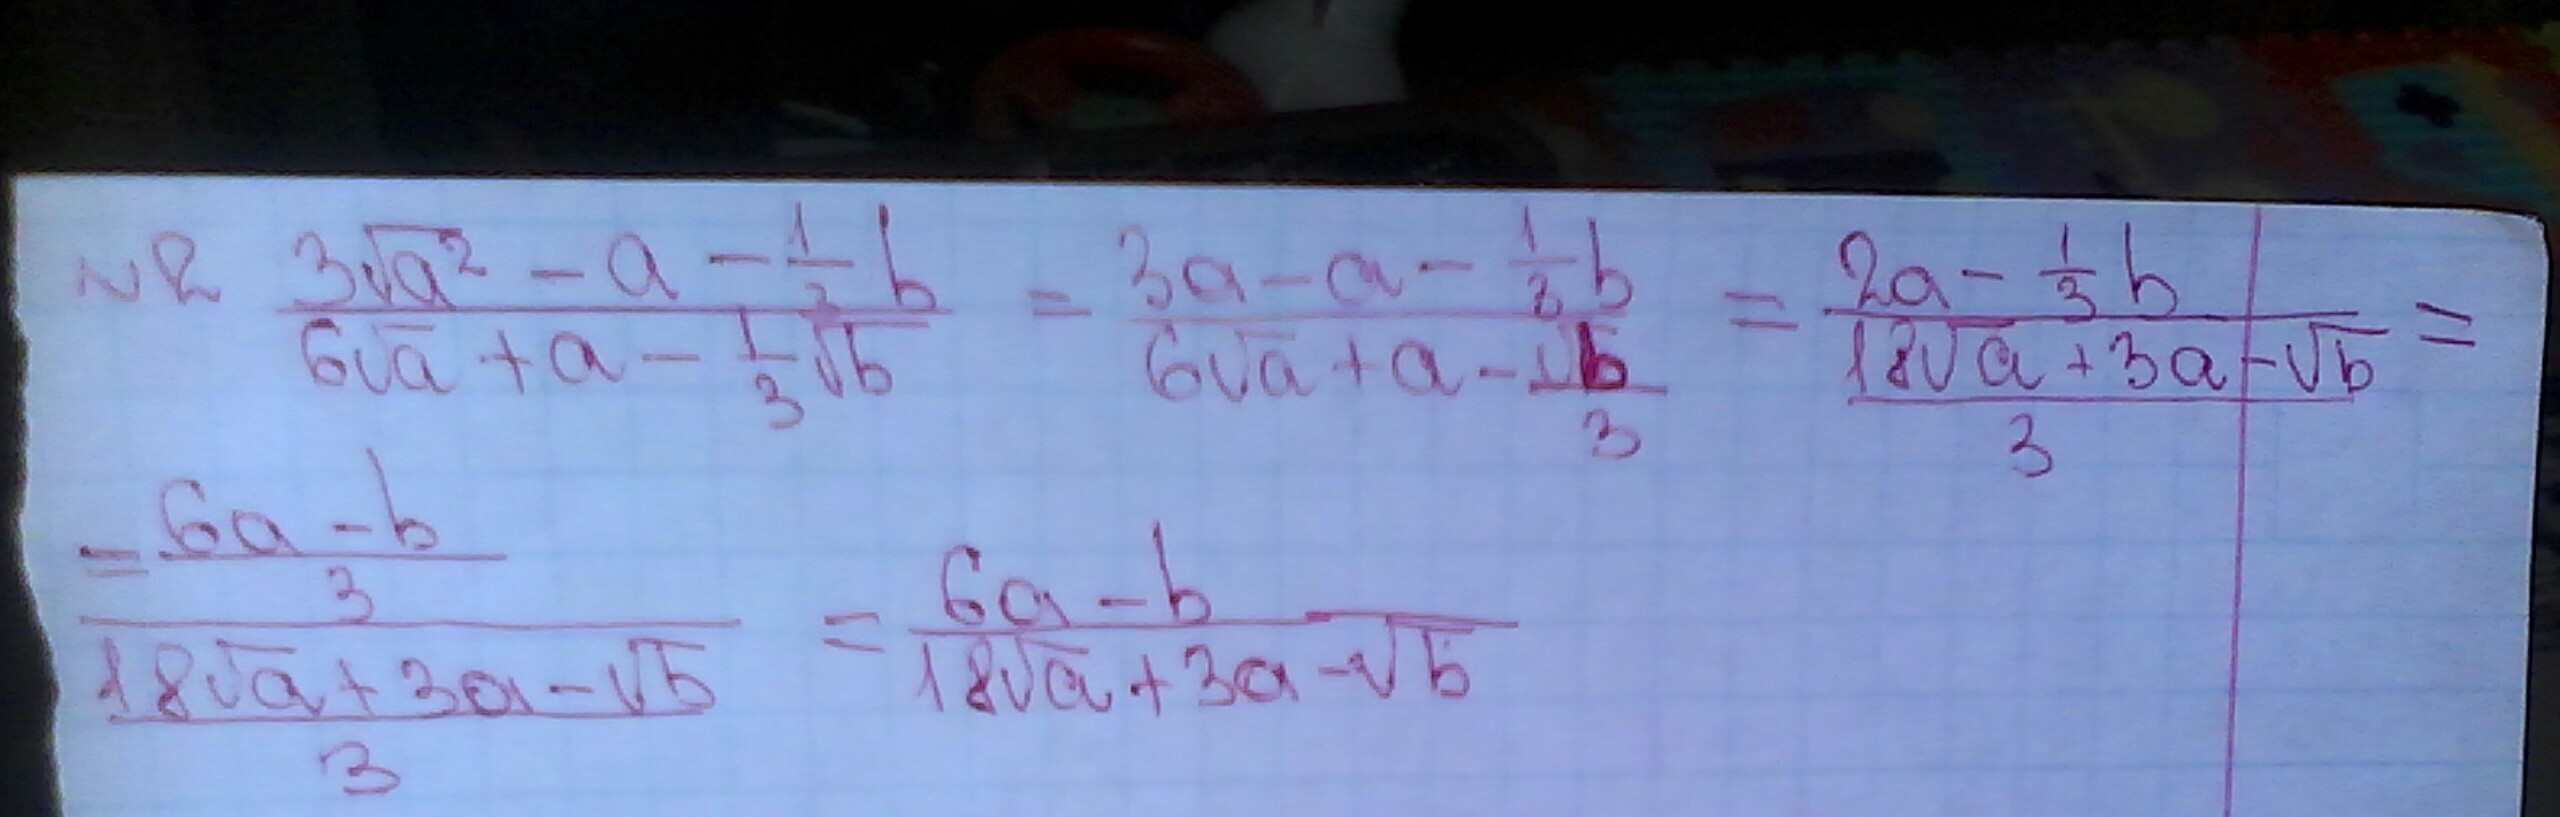 №2 \frac{3\sqrt{a^2} - a - \frac{1}{3}b}{6\sqrt{a} + a - \frac{1}{3}\sqrt{b}} = \frac{3a - a - \frac{1}{3}b}{6\sqrt{a} + a - \frac{\sqrt{b}}{3}} = \frac{2a - \frac{1}{3}b}{\frac{18\sqrt{a} + 3a - \sqrt{b}}{3}} =
= \frac{\frac{6a - b}{3}}{\frac{18\sqrt{a} + 3a - \sqrt{b}}{3}} = \frac{6a - b}{18\sqrt{a} + 3a - \sqrt{b}}